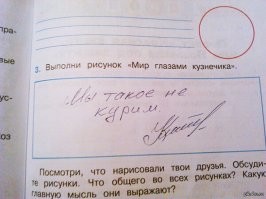 пра-
3. Выполни рисунок «Мир глазами кузнечика».
вые
Мы такое не
курим.
ус-
Посмотри, что нарисовали твои друзья. Обсуди-
те рисунки. Что общего во всех рисунках? Какую
главную мысль они выражают?